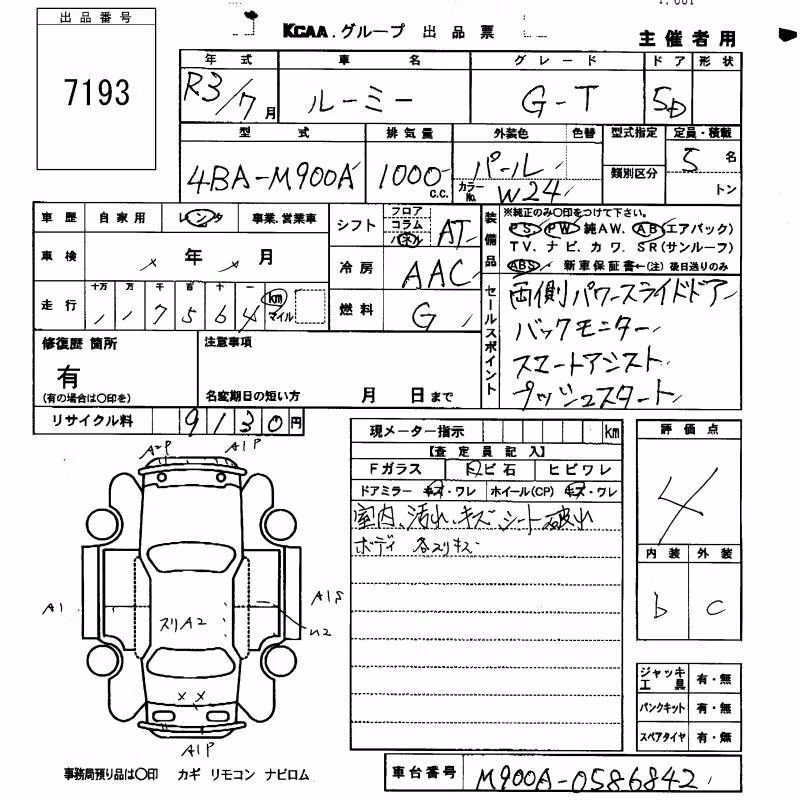 出品番号
7193
KCAA.グループ 出品票
主催者用
年式 車名 グレード ドア 形状
R3/7月 ルーミー G-T 5D
型式 排気量 外装色 色替 型式指定 定員・積載
4BA-M900A 1000 c.c. パール カラーNo. W24 類別区分 5名 トン
車歴 自家用 レンタ 事業、営業車
シフト フロア コラム パネル AT
車検 年 月
冷房 AAC
走行 十万 万 千 百 十 一 km マイル
7564
燃料 G
装備品
※純正のみ○印をつけて下さい。
PS. PW 純AW. AB(エアバック)
TV. ナビ. カワ. SR(サンルーフ)
ABS 新車保証書←(注)後日送りのみ
セールスポイント
両側パワースライドドアー
バックモニター
スマートアシスト
プッシュスタート
修復歴 箇所
有
(有の場合は○印を)
注意事項
名変期日の短い方 月 日まで
リサイクル料 9130円
現メーター指示 km
【査定員記入】
Fガラス 飛ビ石 ヒビワレ
ドアミラー キズ・ワレ ホイール(CP) キズ・ワレ
室内、汚れ、キズ、シート破れ
ボディ 各スリキズ
評価点
4
内装 外装
b c
ジャッキ工具 有・無
パンクキット 有・無
スペアタイヤ 有・無
A2P A1P
A1
スリA2
A1S
U2
XX
A1P
事務局預り品は○印 カギ リモコン ナビロム
車台番号 M900A-0586842